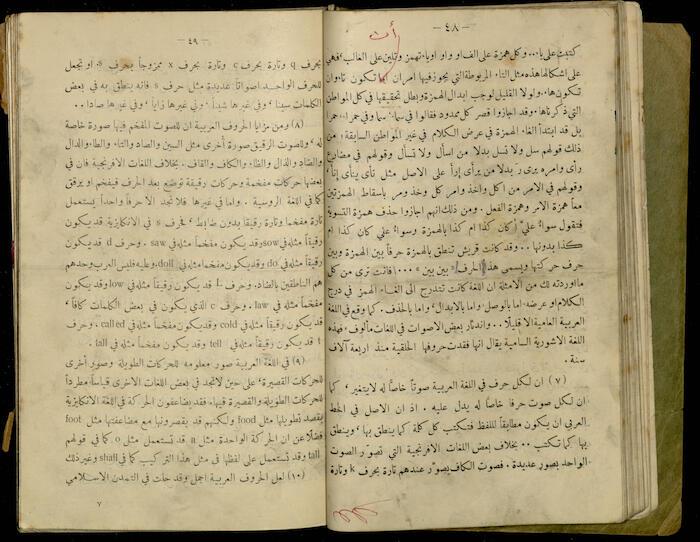 — ٤٨ —
كتبت على يا، .. وكل همزة على الف او واو او ياء تهمز وتلين على الغالب، فهي
على اشكالها هذه مثل التاء المربوطة التي يجوز فيها امران انما تكون تاء وان
تكون ها، ولولا القليل لوجب ابدال الهمزة وبطل تحقيقها في كل المواطن
التي ذكرناها . وقد اجازوا قصر كل ممدود فقالوا في سماء سما وفي حمراء .. حمرا
بل قد ابتدأ الغاء الهمزة في عرض الكلام في غير المواطن السابقة ؛ من
ذلك قولهم سل ولا تسل بدلا من اسأل ولا تسأل وقولهم في مضارع
رأى وامره يرى ر بدلا من يرأى إرأ على الاصل مثل نأى ينأى إنأ ،
وقولهم في الامر من اكل واخذ وامر كل وخذ ومر باسقاط الهمزتين
معاً همزة الامر وهمزة الفعل . ومن ذلك انهم اجازوا حذف همزة التسوية
فتقول سواءٌ عليّ أكان كذا ام كذا بالهمزة وسواءٌ علي كان كذا ام
كذا بدونها .. وقد كانت قريش تنطق بالهمزة حرفاً بين الهمزة وبين
حرف حركتها ويسمى هذا الحرف « بين بين » ... فانت ترى من كل
ما اوردته لك من الامثلة ان اللغة كانت تتدرج الى الغاء الهمز في درج
الكلام او عرضه اما بالوصل واما بالابدال واما بالحذف . كما وقع في اللغة
العربية العامية الا قليلاً .. واندثار بعض الاصوات في اللغات مألوف ، فهذه
اللغة الاشورية السامية يقال انها فقدت حروفها الحلقية منذ اربعة آلاف
سنة .
(٧) ان لكل حرف في اللغة العربية صوتاً خاصاً له لا يتغير ، كما
ان لكل صوت حرفا خاصا له يدل عليه . اذ ان الاصل في الخط
العربي ان يكون مطابقاً للفظ فتكتب كل كلمة كما ينطق بها ، وينطق
بها كما تكتب .. بخلاف بعض اللغات الافرنجية التي تصوّر الصوت
الواحد بصور عديدة . فصوت الكاف يصوّر عندهم تارة بحرف k وتارة
— ٤٩ —
بحرف q وتارة بحرف c وتارة بحرف x ممزوجاً بحرف s. او تجعل
للحرف الواحد اصواتاً عديدة مثل حرف s فانه ينطق به في بعض
الكلمات سينا ، وفي غيرها شيناً . وفي غيرها زايا ، وفي غيرها صادا ..
(٨) ومن مزايا الحروف العربية ان للصوت المفخم فيها صورة خاصة
له ، وللصوت الرقيق صورة أخرى مثل السين والصاد والتاء والطاء والدال
والضاد والذال والظاء والكاف والقاف . بخلاف اللغات الافرنجية فان في
بعضها حركات مفخمة وحركات رقيقة توضع بعد الحرف فيفخم او يرقق
كما في اللغة الروسية . واما في غيرها فلا تجد الا حرفاً واحداً يستعمل
تارة مفخما وتارة رقيقاً بدون ضابط ، فحرف s في الانكليزية قد يكون
رقيقاً مثله في sow وقد يكون مفخماً مثله في saw . وحرف d قد يكون
رقيقاً مثله في do وقد يكون مفخما مثله في doll، وعليه فليس العرب وحدهم
هم الناطقين بالضاد . وحرف L قد يكون رقيقاً مثله في low وقد يكون
مفخماً مثله في law . وحرف c الذي يكون في بعض الكلمات كافاً ،
قد يكون رقيقاً مثله في cold وقد يكون مفخماً مثله في called . وحرف
t قد يكون رقيقاً مثله في tell وقد يكون مفخماً مثله في tall .
(٩) في اللغة العربية صور معلومه للحركات الطويلة وصور أخرى
للحركات القصيرة ، على حين لا تجد في بعض اللغات الاخرى قياساً مطرداً
للحركات الطويلة والقصيرة فيها . فقد يضاعفون الحركة في اللغة الانكليزية
بقصد تطويلها مثل food ولكنهم قد يقصرونها مع مضاعفتها مثل foot
فضلاً عن ان الحركة الواحدة مثل a قد تستعمل مثل o كما في قولهم
tall وقد تستعمل على لفظها في مثل هذا التركيب كما في shall وغير ذلك
(١٠) لعل الحروف العربية اجمل وقد حلت في التمدن الاسلامي
٧